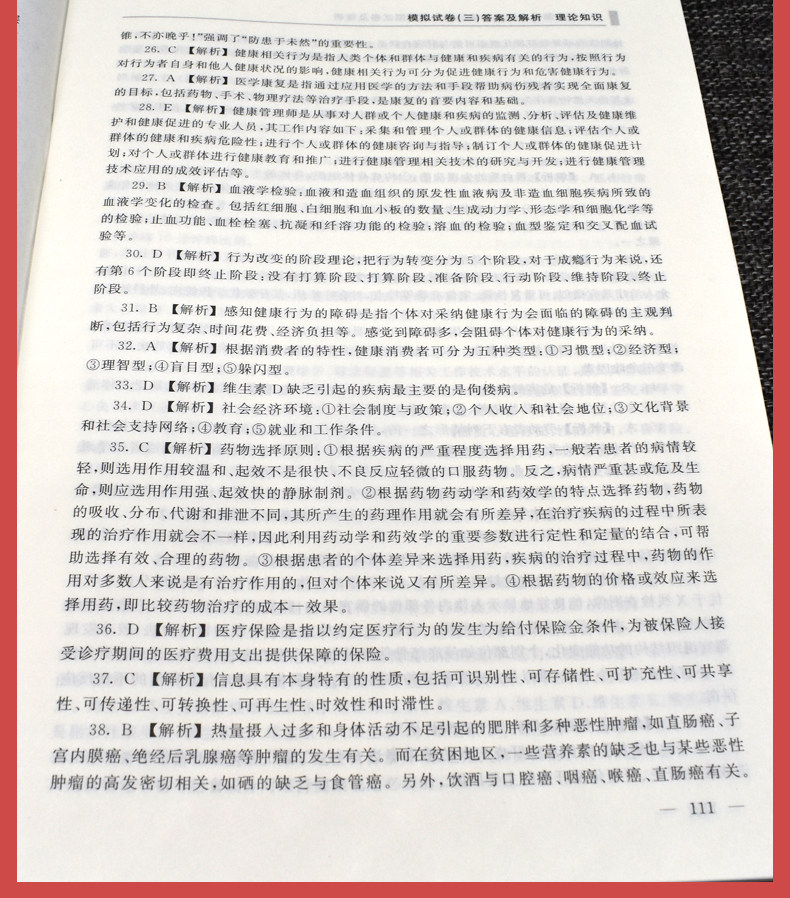 模拟试卷(三)答案及解析 理论知识
锥,不亦晚乎!”强调了“防患于未然”的重要性。
26. C 【解析】健康相关行为是指人类个体和群体与健康和疾病有关的行为,按照行为
对行为者自身和他人健康状况的影响,健康相关行为可分为促进健康行为和危害健康行为。
27. A 【解析】医学康复是指通过应用医学的方法和手段帮助病伤残者实现全面康复
的目标,包括药物、手术、物理疗法等治疗手段,是康复的首要内容和基础。
28. E 【解析】健康管理师是从事对人群或个人健康和疾病的监测、分析、评估及健康维
护和健康促进的专业人员,其工作内容如下:采集和管理个人或群体的健康信息;评估个人或
群体的健康和疾病危险性;进行个人或群体的健康咨询与指导;制订个人或群体的健康促进计
划;对个人或群体进行健康教育和推广;进行健康管理相关技术的研究与开发;进行健康管理
技术应用的成效评估等。
29. B 【解析】血液学检验:血液和造血组织的原发性血液病及非造血细胞疾病所致的
血液学变化的检查。包括红细胞、白细胞和血小板的数量、生成动力学、形态学和细胞化学等
的检验;止血功能、血栓栓塞、抗凝和纤溶功能的检验;溶血的检验;血型鉴定和交叉配血试
验等。
30. D 【解析】行为改变的阶段理论,把行为转变分为 5 个阶段,对于成瘾行为来说,还
有第 6 个阶段即终止阶段:没有打算阶段、打算阶段、准备阶段、行动阶段、维持阶段、终止
阶段。
31. B 【解析】感知健康行为的障碍是指个体对采纳健康行为会面临的障碍的主观判
断,包括行为复杂、时间花费、经济负担等。感觉到障碍多,会阻碍个体对健康行为的采纳。
32. A 【解析】根据消费者的特性,健康消费者可分为五种类型:①习惯型;②经济型;
③理智型;④盲目型;⑤躲闪型。
33. D 【解析】维生素 D 缺乏引起的疾病最主要的是佝偻病。
34. D 【解析】社会经济环境:①社会制度与政策;②个人收入和社会地位;③文化背景
和社会支持网络;④教育;⑤就业和工作条件。
35. C 【解析】药物选择原则:①根据疾病的严重程度选择用药,一般若患者的病情较
轻,则选用作用较温和、起效不是很快、不良反应轻微的口服药物。反之,病情严重甚或危及生
命,则应选用作用强、起效快的静脉制剂。②根据药物药动学和药效学的特点选择药物,药物
的吸收、分布、代谢和排泄不同,其所产生的药理作用就会有所差异,在治疗疾病的过程中所表
现的治疗作用就会不一样,因此利用药动学和药效学的重要参数进行定性和定量的结合,可帮
助选择有效、合理的药物。③根据患者的个体差异来选择用药,疾病的治疗过程中,药物的作
用对多数人来说是有治疗作用的,但对个体来说又有所差异。④根据药物的价格或效应来选
择用药,即比较药物治疗的成本—效果。
36. D 【解析】医疗保险是指以约定医疗行为的发生为给付保险金条件,为被保险人接
受诊疗期间的医疗费用支出提供保障的保险。
37. C 【解析】信息具有本身特有的性质,包括可识别性、可存储性、可扩充性、可共享
性、可传递性、可转换性、可再生性、时效性和时滞性。
38. B 【解析】热量摄入过多和身体活动不足引起的肥胖和多种恶性肿瘤,如直肠癌、子
宫内膜癌、绝经后乳腺癌等肿瘤的发生有关。而在贫困地区,一些营养素的缺乏也与某些恶性
肿瘤的高发密切相关,如硒的缺乏与食管癌。另外,饮酒与口腔癌、咽癌、喉癌、直肠癌有关。
— 111 —